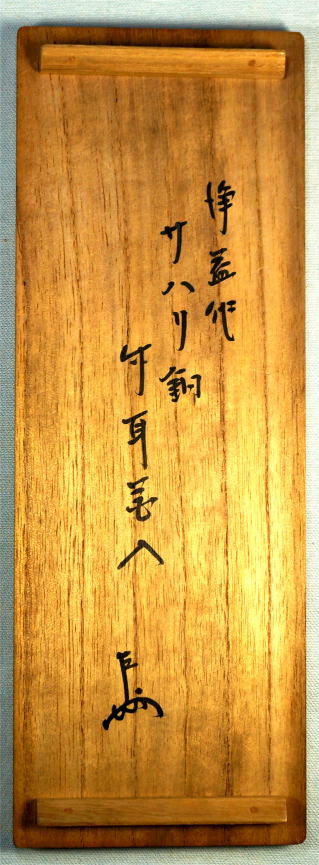 浄益作
サハリ銅
耳花入